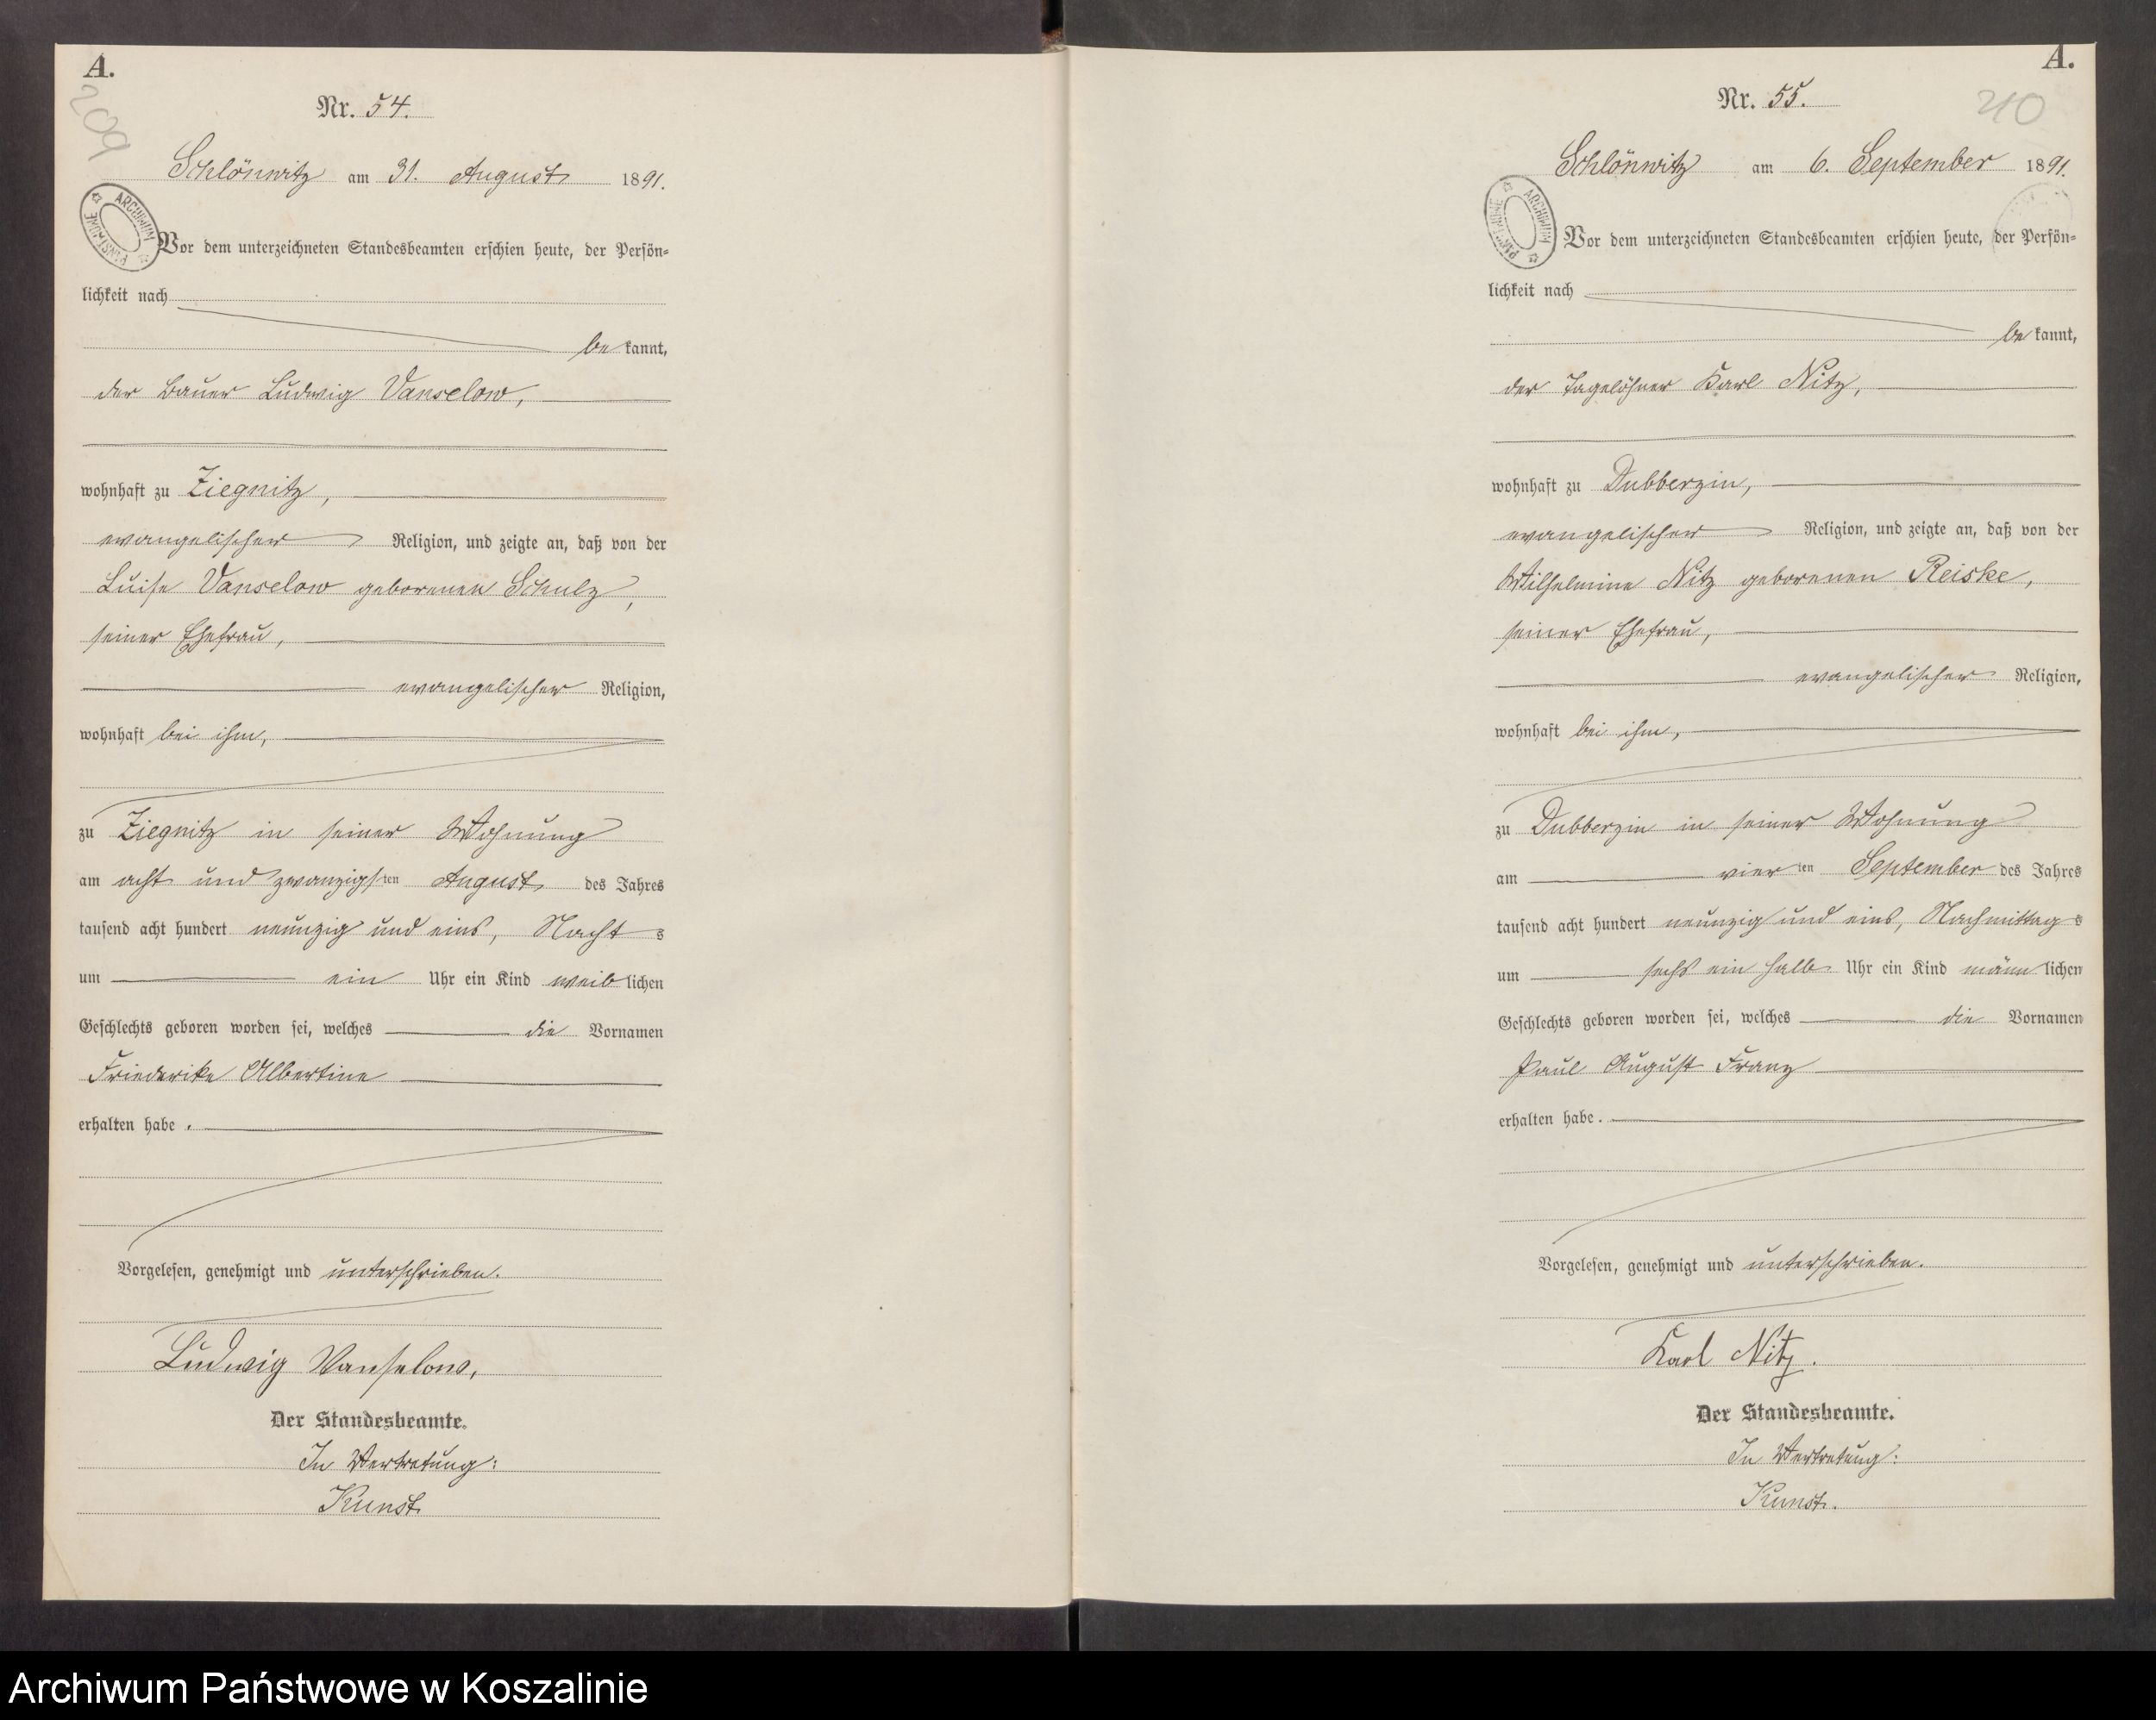 A.
209
Nr. 54.
Schlönwitz am 31. August 1891.
ARCHIWUM PAŃSTWOWE
Vor dem unterzeichneten Standesbeamten erschien heute, der Persön=
lichkeit nach
be kannt,
der Bauer Ludwig Vanselow,
wohnhaft zu Ziegnitz,
evangelischer Religion, und zeigte an, daß von der
Luise Vanselow geborenen Schulz,
seiner Ehefrau,
evangelischer Religion,
wohnhaft bei ihm,
zu Ziegnitz in seiner Wohnung
am acht und zwanzigsten August des Jahres
tausend acht hundert neunzig und eins, Nachts
um ein Uhr ein Kind weiblichen
Geschlechts geboren worden sei, welches die Vornamen
Friederike Albertine
erhalten habe.
Vorgelesen, genehmigt und unterschrieben.
Ludwig Vanselow,
Der Standesbeamte.
In Vertretung:
Kunst
A.
210
Nr. 55.
Schlönwitz am 6. September 1891.
ARCHIWUM PAŃSTWOWE
Vor dem unterzeichneten Standesbeamten erschien heute, der Persön=
lichkeit nach
be kannt,
der Tagelöhner Karl Nitz,
wohnhaft zu Dubberzin,
evangelischer Religion, und zeigte an, daß von der
Wilhelmine Nitz geborenen Reiske,
seiner Ehefrau,
evangelischer Religion,
wohnhaft bei ihm,
zu Dubberzin in seiner Wohnung
am vierten September des Jahres
tausend acht hundert neunzig und eins, Nachmittags
um sechs ein halb Uhr ein Kind männlichen
Geschlechts geboren worden sei, welches die Vornamen
Paul August Franz
erhalten habe.
Vorgelesen, genehmigt und unterschrieben.
Karl Nitz.
Der Standesbeamte.
In Vertretung:
Kunst.
Archiwum Państwowe w Koszalinie